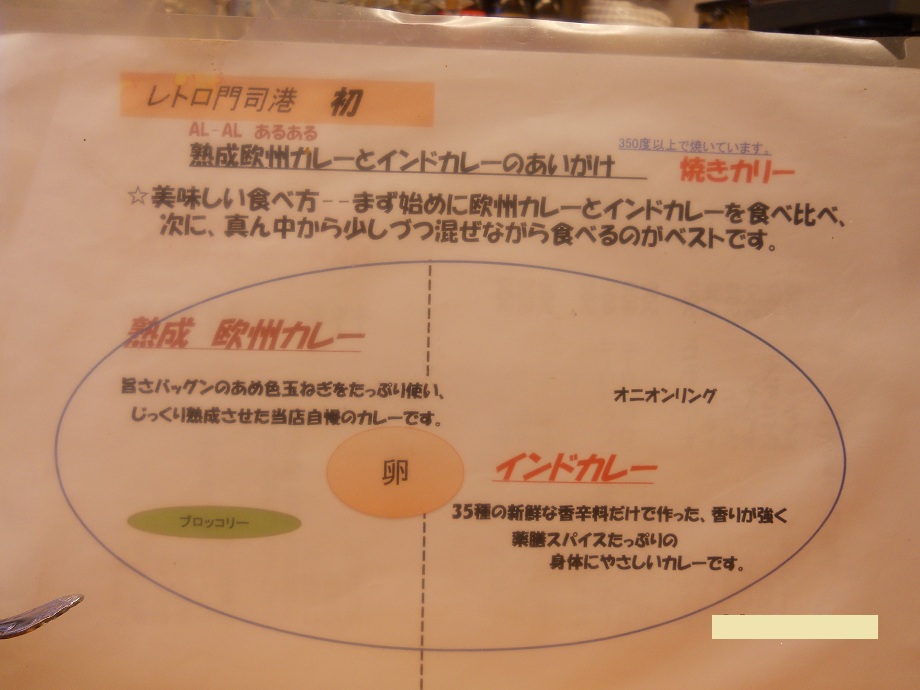 レトロ門司港 初
AL-AL あるある
350度以上で焼いています。
熟成欧州カレーとインドカレーのあいがけ 焼きカリー
☆美味しい食べ方--まず始めに欧州カレーとインドカレーを食べ比べ、
次に、真ん中から少しづつ混ぜながら食べるのがベストです。
熟成 欧州カレー
旨さバッグンのあめ色玉ねぎをたっぷり使い、
じっくり熟成させた当店自慢のカレーです。
オニオンリング
卵
インドカレー
ブロッコリー
35種の新鮮な香辛料だけで作った、香りが強く
薬膳スパイスたっぷりの
身体にやさしいカレーです。